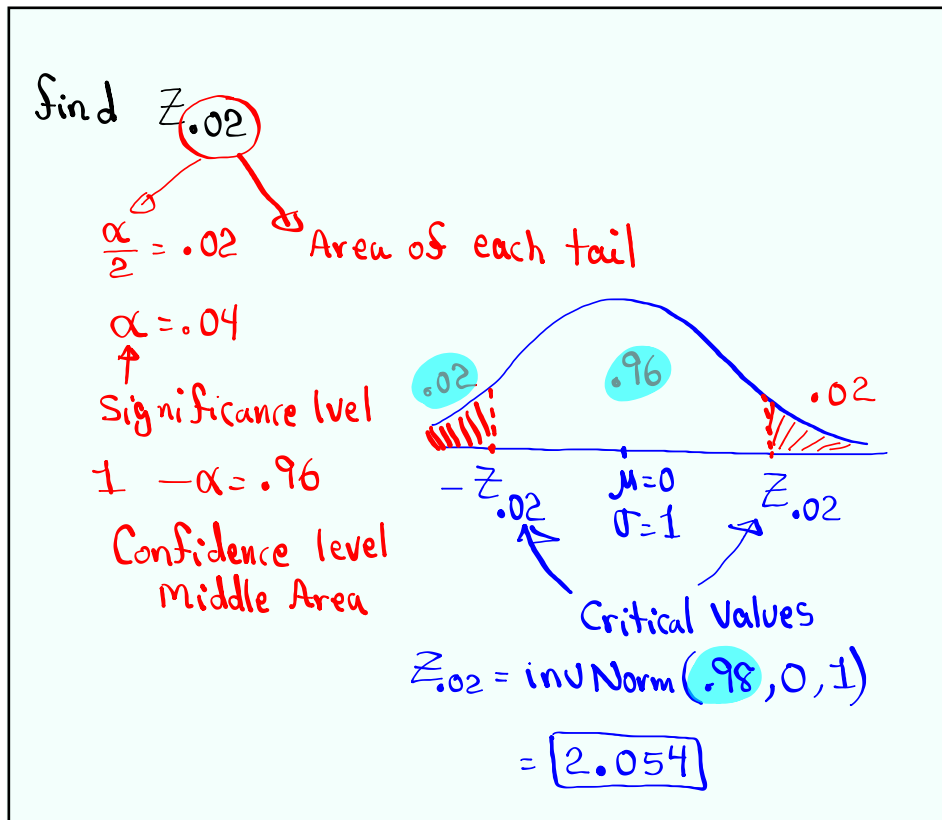 find Z.02
α/2 = .02 Area of each tail
α = .04
Significance lvel
1 - α = .96
Confidence level
Middle Area
.02 .96 .02
-Z.02 μ=0 Z.02
σ=1
Critical Values
Z.02 = invNorm(.98, 0, 1)
= 2.054